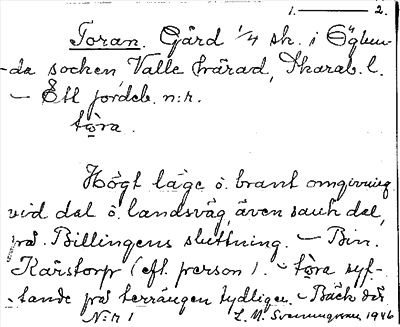 1. ——— 2.
Toran. Gård 1/4 sk. i Öglun-
da socken, Valle härad, Skarab. l.
— Ett jordeb. n:r.
tòra.
Högt läge o. brant omgivning
vid dal o. landsväg, även sank dal,
på Billingens sluttning. — Bin.
Kärstorp (eft. person). — tòra syf-
tande på terrängen tydligen. — Bäck där
N:r 1 L. M. Svenungsson 1946